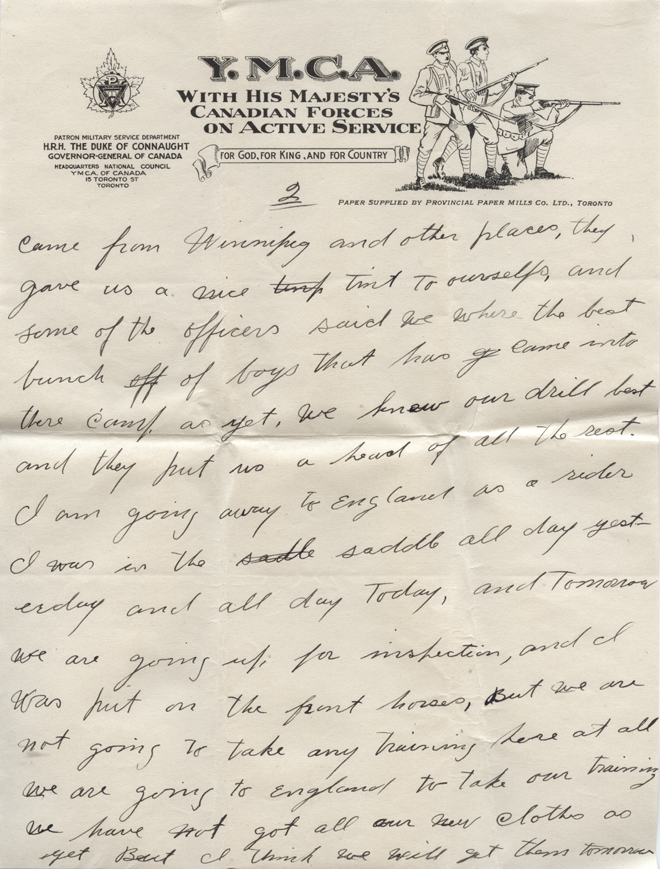 Y.M.C.A.
WITH HIS MAJESTY'S
CANADIAN FORCES
ON ACTIVE SERVICE
FOR GOD, FOR KING, AND FOR COUNTRY
PATRON MILITARY SERVICE DEPARTMENT
H.R.H. THE DUKE OF CONNAUGHT
GOVERNOR-GENERAL OF CANADA
HEADQUARTERS NATIONAL COUNCIL
Y.M.C.A. OF CANADA
15 TORONTO ST
TORONTO
PAPER SUPPLIED BY PROVINCIAL PAPER MILLS CO. LTD., TORONTO
2
came from Winnipeg and other places, they
gave us a nice tint to ourselfs, and
some of the officers said we where the best
bunch off of boys that has go came into
there camp as yet, we know our drill best
and they put us a head of all the rest.
I am going away to England as a rider
I was in the sadle saddle all day yest-
erday and all day Today, and Tomorrow
we are going up for inspection, and I
was put on the front horses, But we are
not going to take any training here at all
we are going to England to take our training
we have not got all our new cloths as
yet But I think we will get them tomorrow